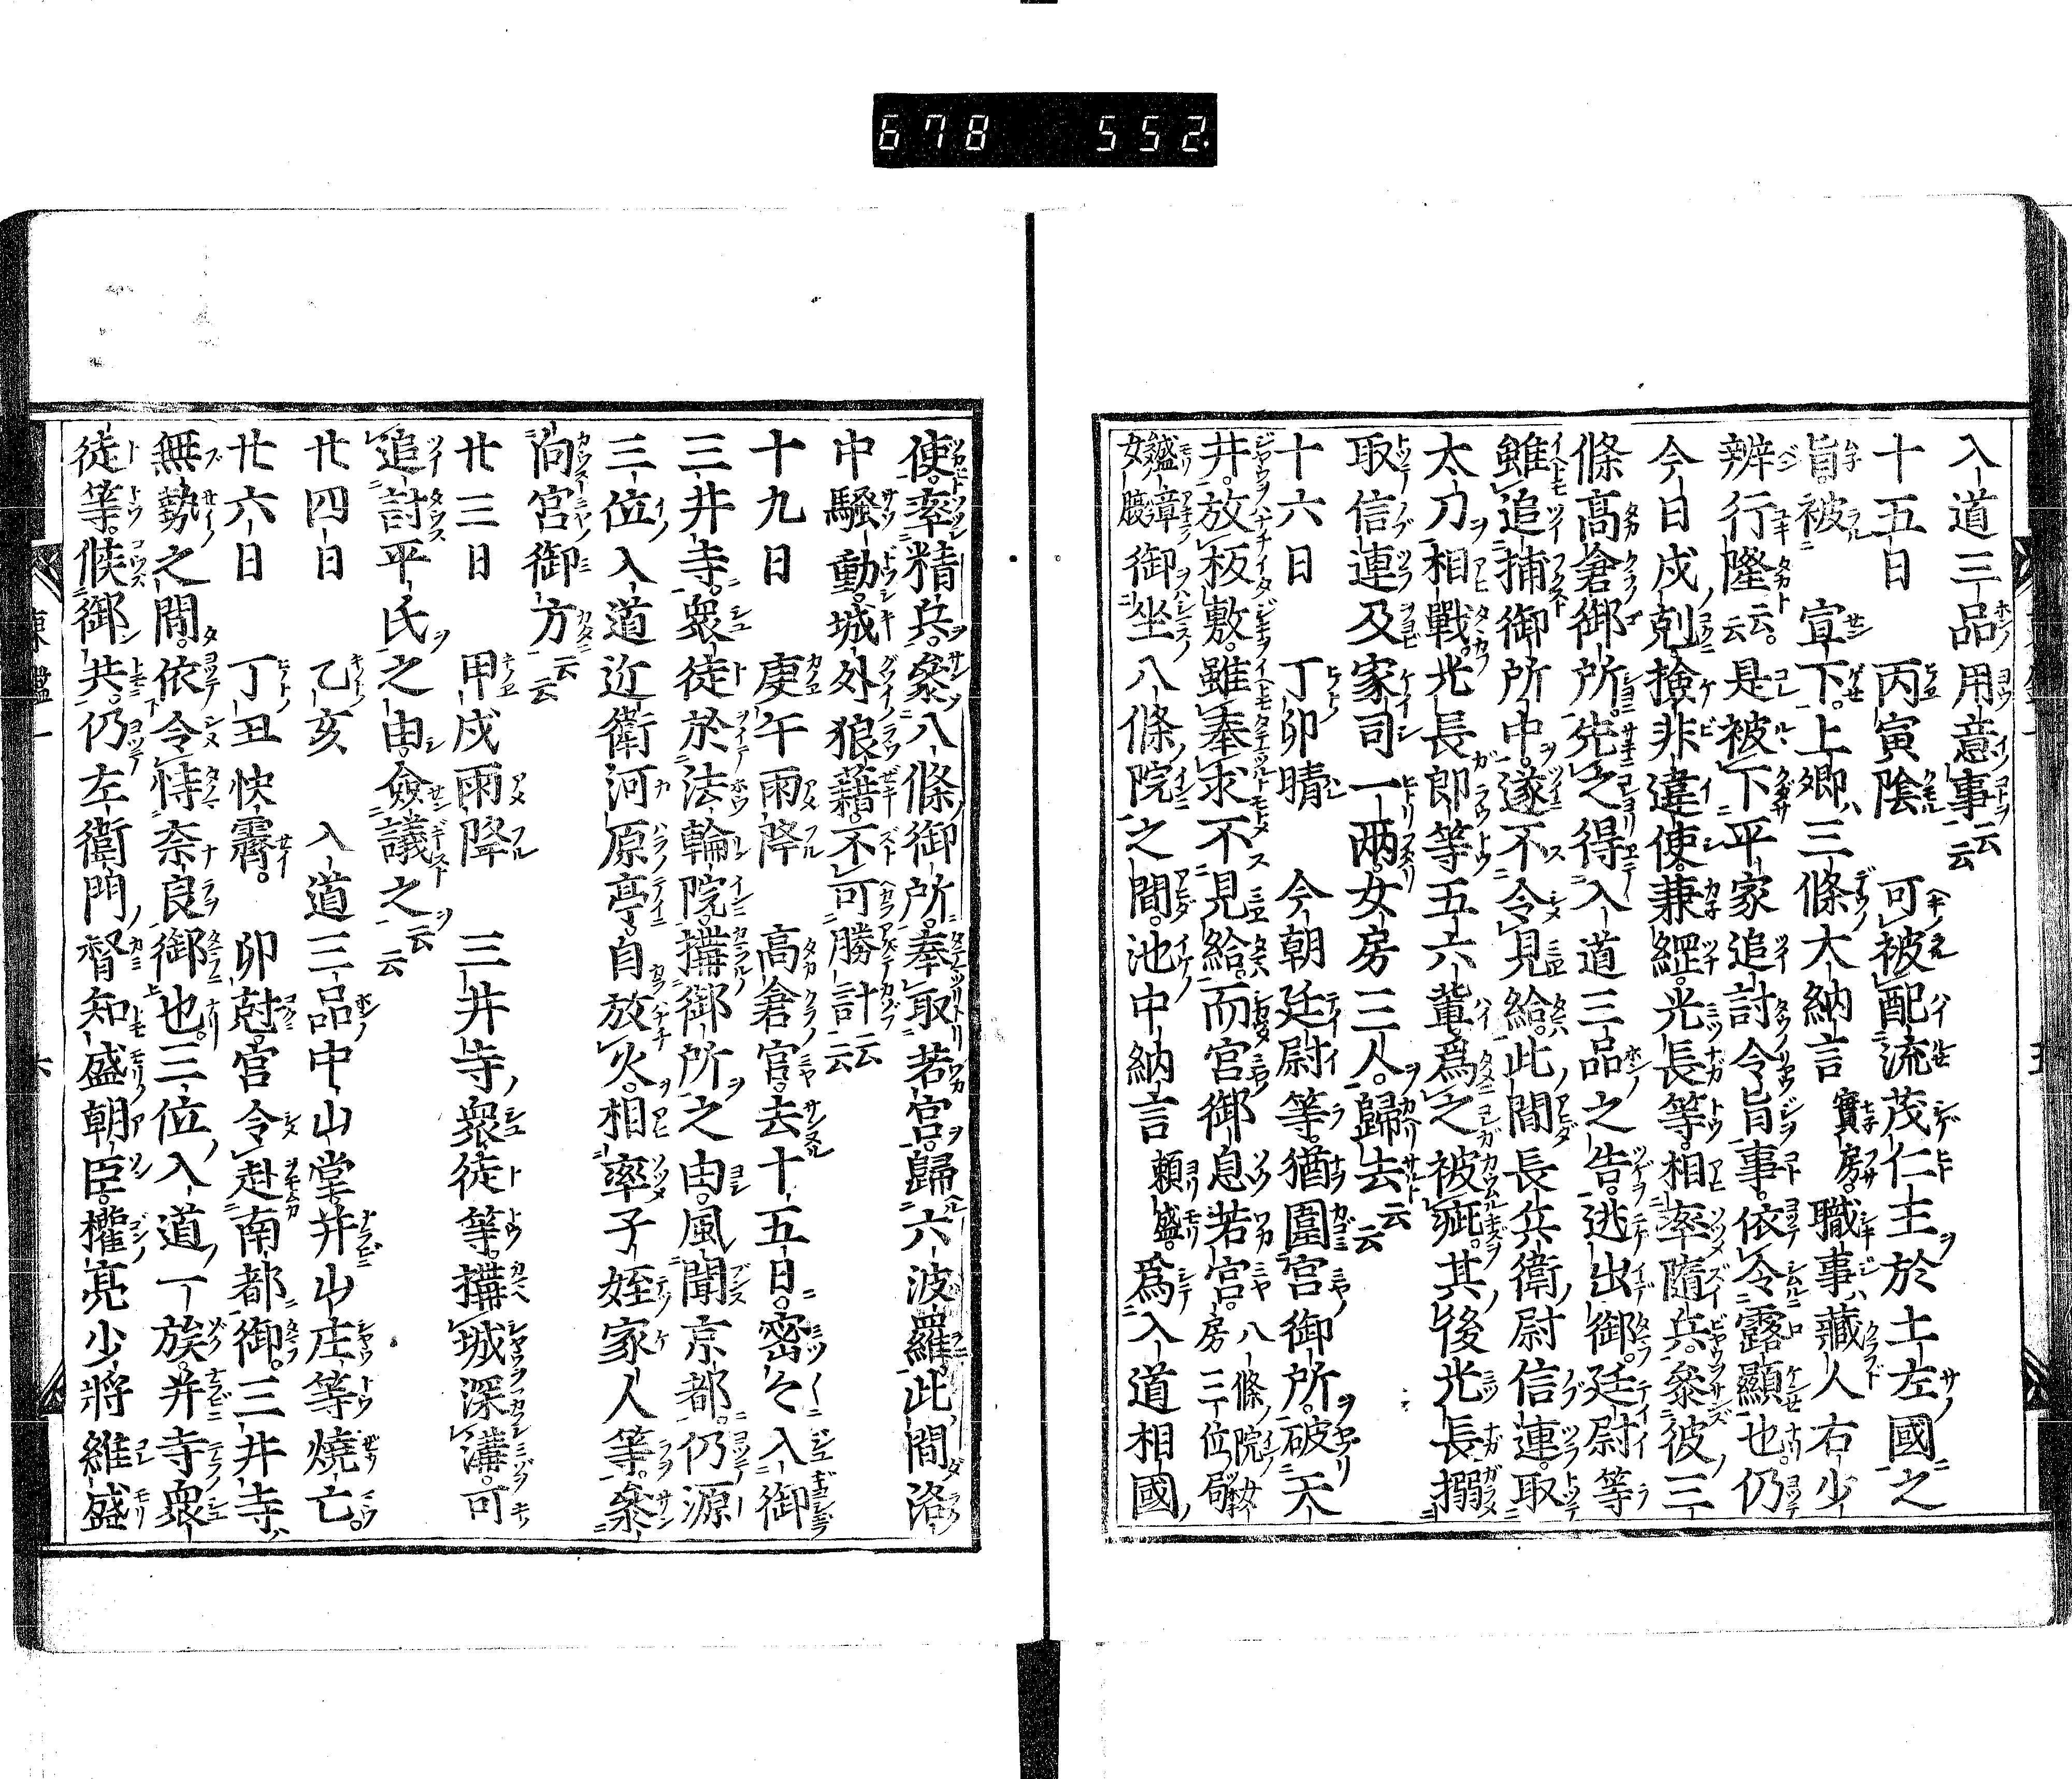 678 552
入道三品用意事云云
十五日 丙寅陰 可被配流茂仁王於土左國之
旨。被 宣下。上卿三條大納言實房。職事藏人右少
辨行隆云云。是被下平家追討令旨事。依令露顯也。仍
今日戍剋。撿非違使。兼綱。光長等。相率隨兵。參彼三
條高倉御所。先之得入道三品之告。逃出御。廷尉等
雖追捕御所中。遂不令見給。此間長兵衛尉信連。取
太刀相戰。光長郎等五六輩。爲之被疵。其後光長搦
取信連及家司一兩。女房三人。歸去云云
十六日 丁卯晴 今朝廷尉等。猶圍宮御所。破天
井。放板敷。雖奉求不見給。而宮御息若宮。八條院女房三位局
盛章女腹御坐八條院之間。池中納言頼盛。爲入道相國
使。率精兵。參八條御所。奉取若宮。歸六波羅。此間洛
中騷動。城外狼藉。不可勝計云云
十九日 庚午雨降 高倉宮。去十五日。密々入御
三井寺。衆徒於法輪院。搆御所之由。風聞京都。仍源
三位入道近衛河原亭。自放火。相率子姪家人等。參
向宮御方云云
廿三日 甲戍雨降 三井寺衆徒等。搆城深溝。可
追討平氏之由。僉議之云云
廿四日 乙亥 入道三品中山堂。并山庄等燒亡。
廿六日 丁丑快霽。 卯尅。宮令赴南都御。三井寺
無勢之間。依令恃奈良御也。三位入道一族。并寺衆
徒等。候御共。仍左衛門督知盛朝臣。權亮少將維盛